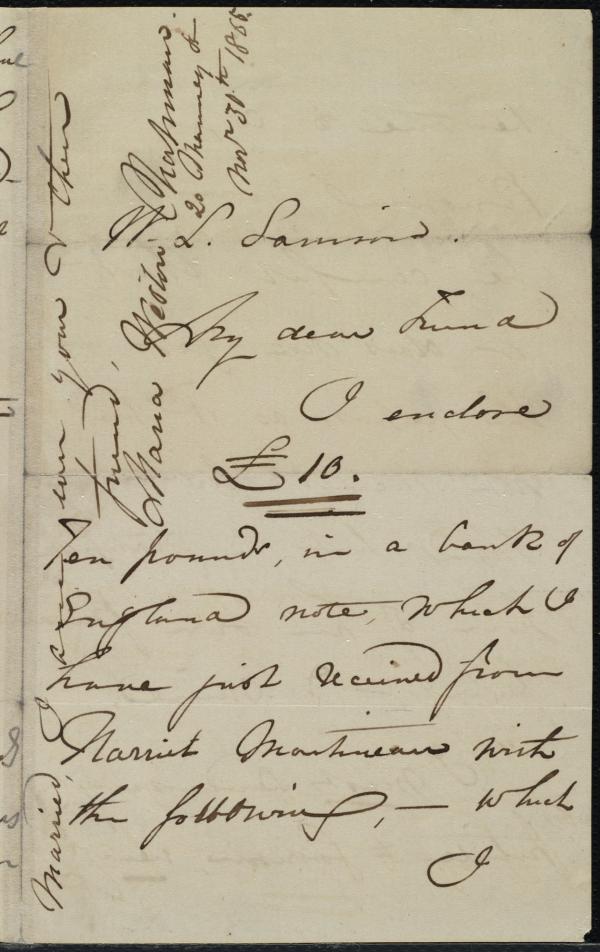 W. L. Garrison.
My dear Friend
I enclose
£10.
Ten pounds, in a bank of
England note, which I
have just received from
Harriet Martineau with
the following, — which
I
Married, I am ever your & their
friend,
Maria Weston Chapman.
20 Chauncy St
Novr 30th 1855.